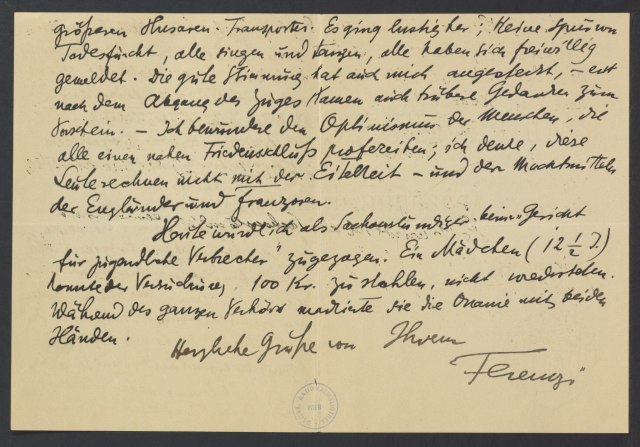 größeren Husaren-Transportes. Es ging lustig her; keine Spur von
Todesfurcht, alle singen und tanzen, alle haben sich freiwillig
gemeldet. Die gute Stimmung hat auch mich angesteckt, – erst
nach dem Abgang des Zuges kamen auch trübere Gedanken zum
Vorschein. – Ich bewundere den Optimismus der Menschen, die
alle einen nahen Friedensschluß profezeiten; ich denke, diese
Leute rechnen nicht mit der Eitelkeit – und den Machtmitteln
der Engländer und Franzosen.
Heute wurde ich als Sachverständiger beim „Gericht
für jugendliche Verbrecher" zugezogen. Ein Mädchen (12 ½ J.)
konnte der Versuchung, 100 Kr. zu stehlen, nicht wiederstehen.
Während des ganzen Verhörs markierte sie die Onanie mit beiden
Händen.
Herzliche Grüße von Ihrem
Ferenczi